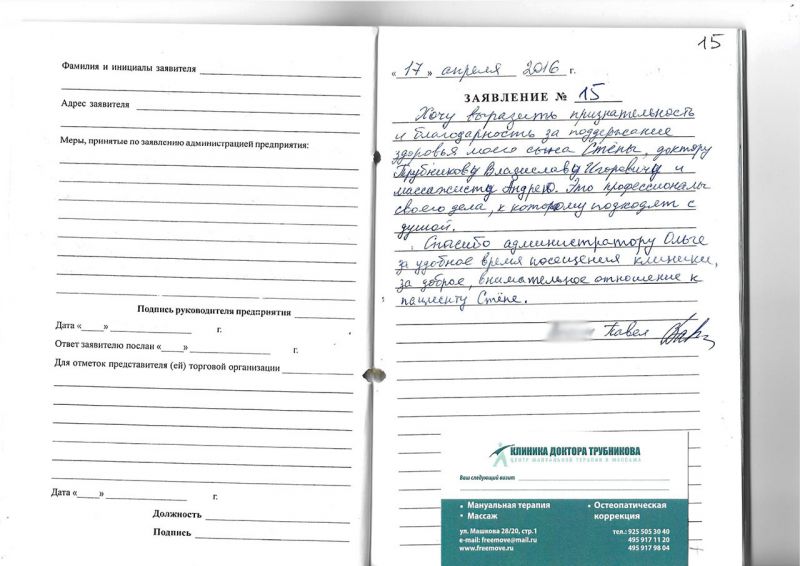 Фамилия и инициалы заявителя
Адрес заявителя
Меры, принятые по заявлению администрацией предприятия:
Подпись руководителя предприятия
Дата «____» ____________ г.
Ответ заявителю послан «____» ____________ г.
Для отметок представителя (ей) торговой организации
Дата «____» ____________ г.
Должность
Подпись
15
« 17 » апреля 2016 г.
ЗАЯВЛЕНИЕ № 15
Хочу выразить признательность
и благодарность за поддержание
здоровья моего сына Стёпы, доктору
Трубникову Владиславу Игоревичу и
массажисту Андрею. Это профессионалы
своего дела, к которому подходят с
душой.
Спасибо администратору Ольге
за удобное время посещения клиники,
за доброе, внимательное отношение к
пациенту Стёпе.
Павел
КЛИНИКА ДОКТОРА ТРУБНИКОВА
ЦЕНТР МАНУАЛЬНОЙ ТЕРАПИИ И МАССАЖА
Ваш следующий визит
• Мануальная терапия
• Массаж
• Остеопатическая
коррекция
ул. Машкова 28/20, стр.1
e-mail: freemove@mail.ru
www.freemove.ru
тел.: 925 505 30 40
495 917 11 20
495 917 98 04